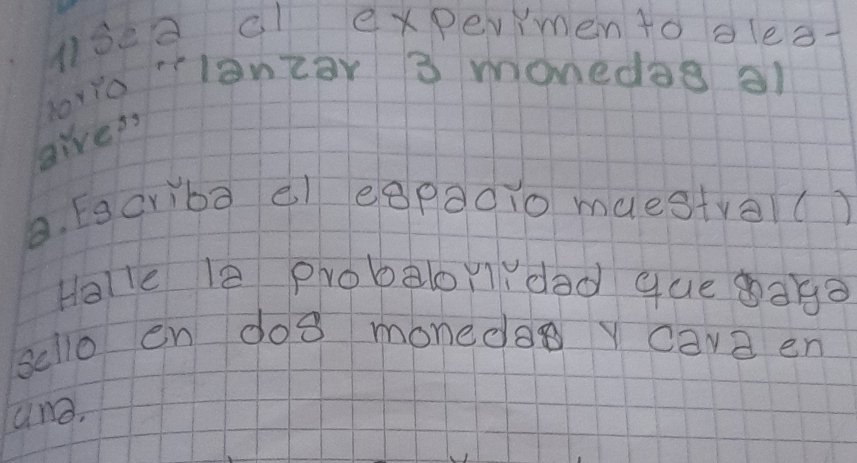 1) Sea el experimento alea-
torio "lanzar 3 monedas al
aire"
a. Escriba el espacio muestral ( )
Halle la probabilidad que caiga
sello en dos monedas y cara en
una.